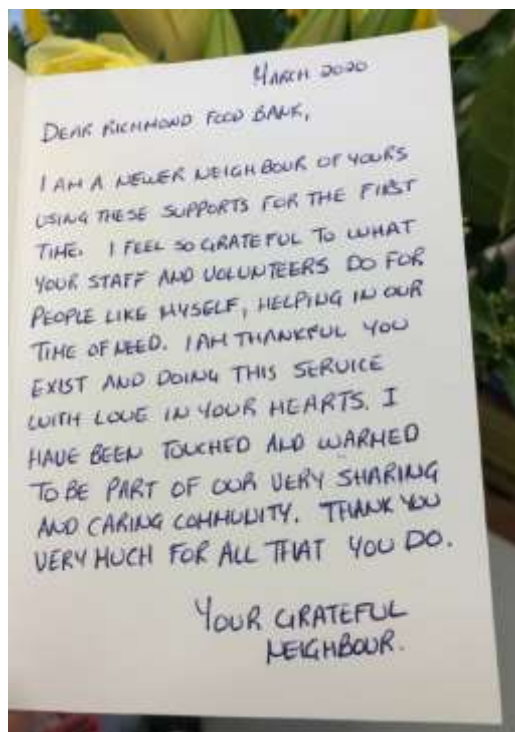 MARCH 2020
DEAR RICHMOND FOOD BANK,
I AM A NEWER NEIGHBOUR OF YOURS
USING THESE SUPPORTS FOR THE FIRST
TIME. I FEEL SO GRATEFUL TO WHAT
YOUR STAFF AND VOLUNTEERS DO FOR
PEOPLE LIKE MYSELF, HELPING IN OUR
TIME OF NEED. I AM THANKFUL YOU
EXIST AND DOING THIS SERVICE
WITH LOVE IN YOUR HEARTS. I
HAVE BEEN TOUCHED AND WARMED
TO BE PART OF OUR VERY SHARING
AND CARING COMMUNITY. THANK YOU
VERY MUCH FOR ALL THAT YOU DO.
YOUR GRATEFUL
NEIGHBOUR.